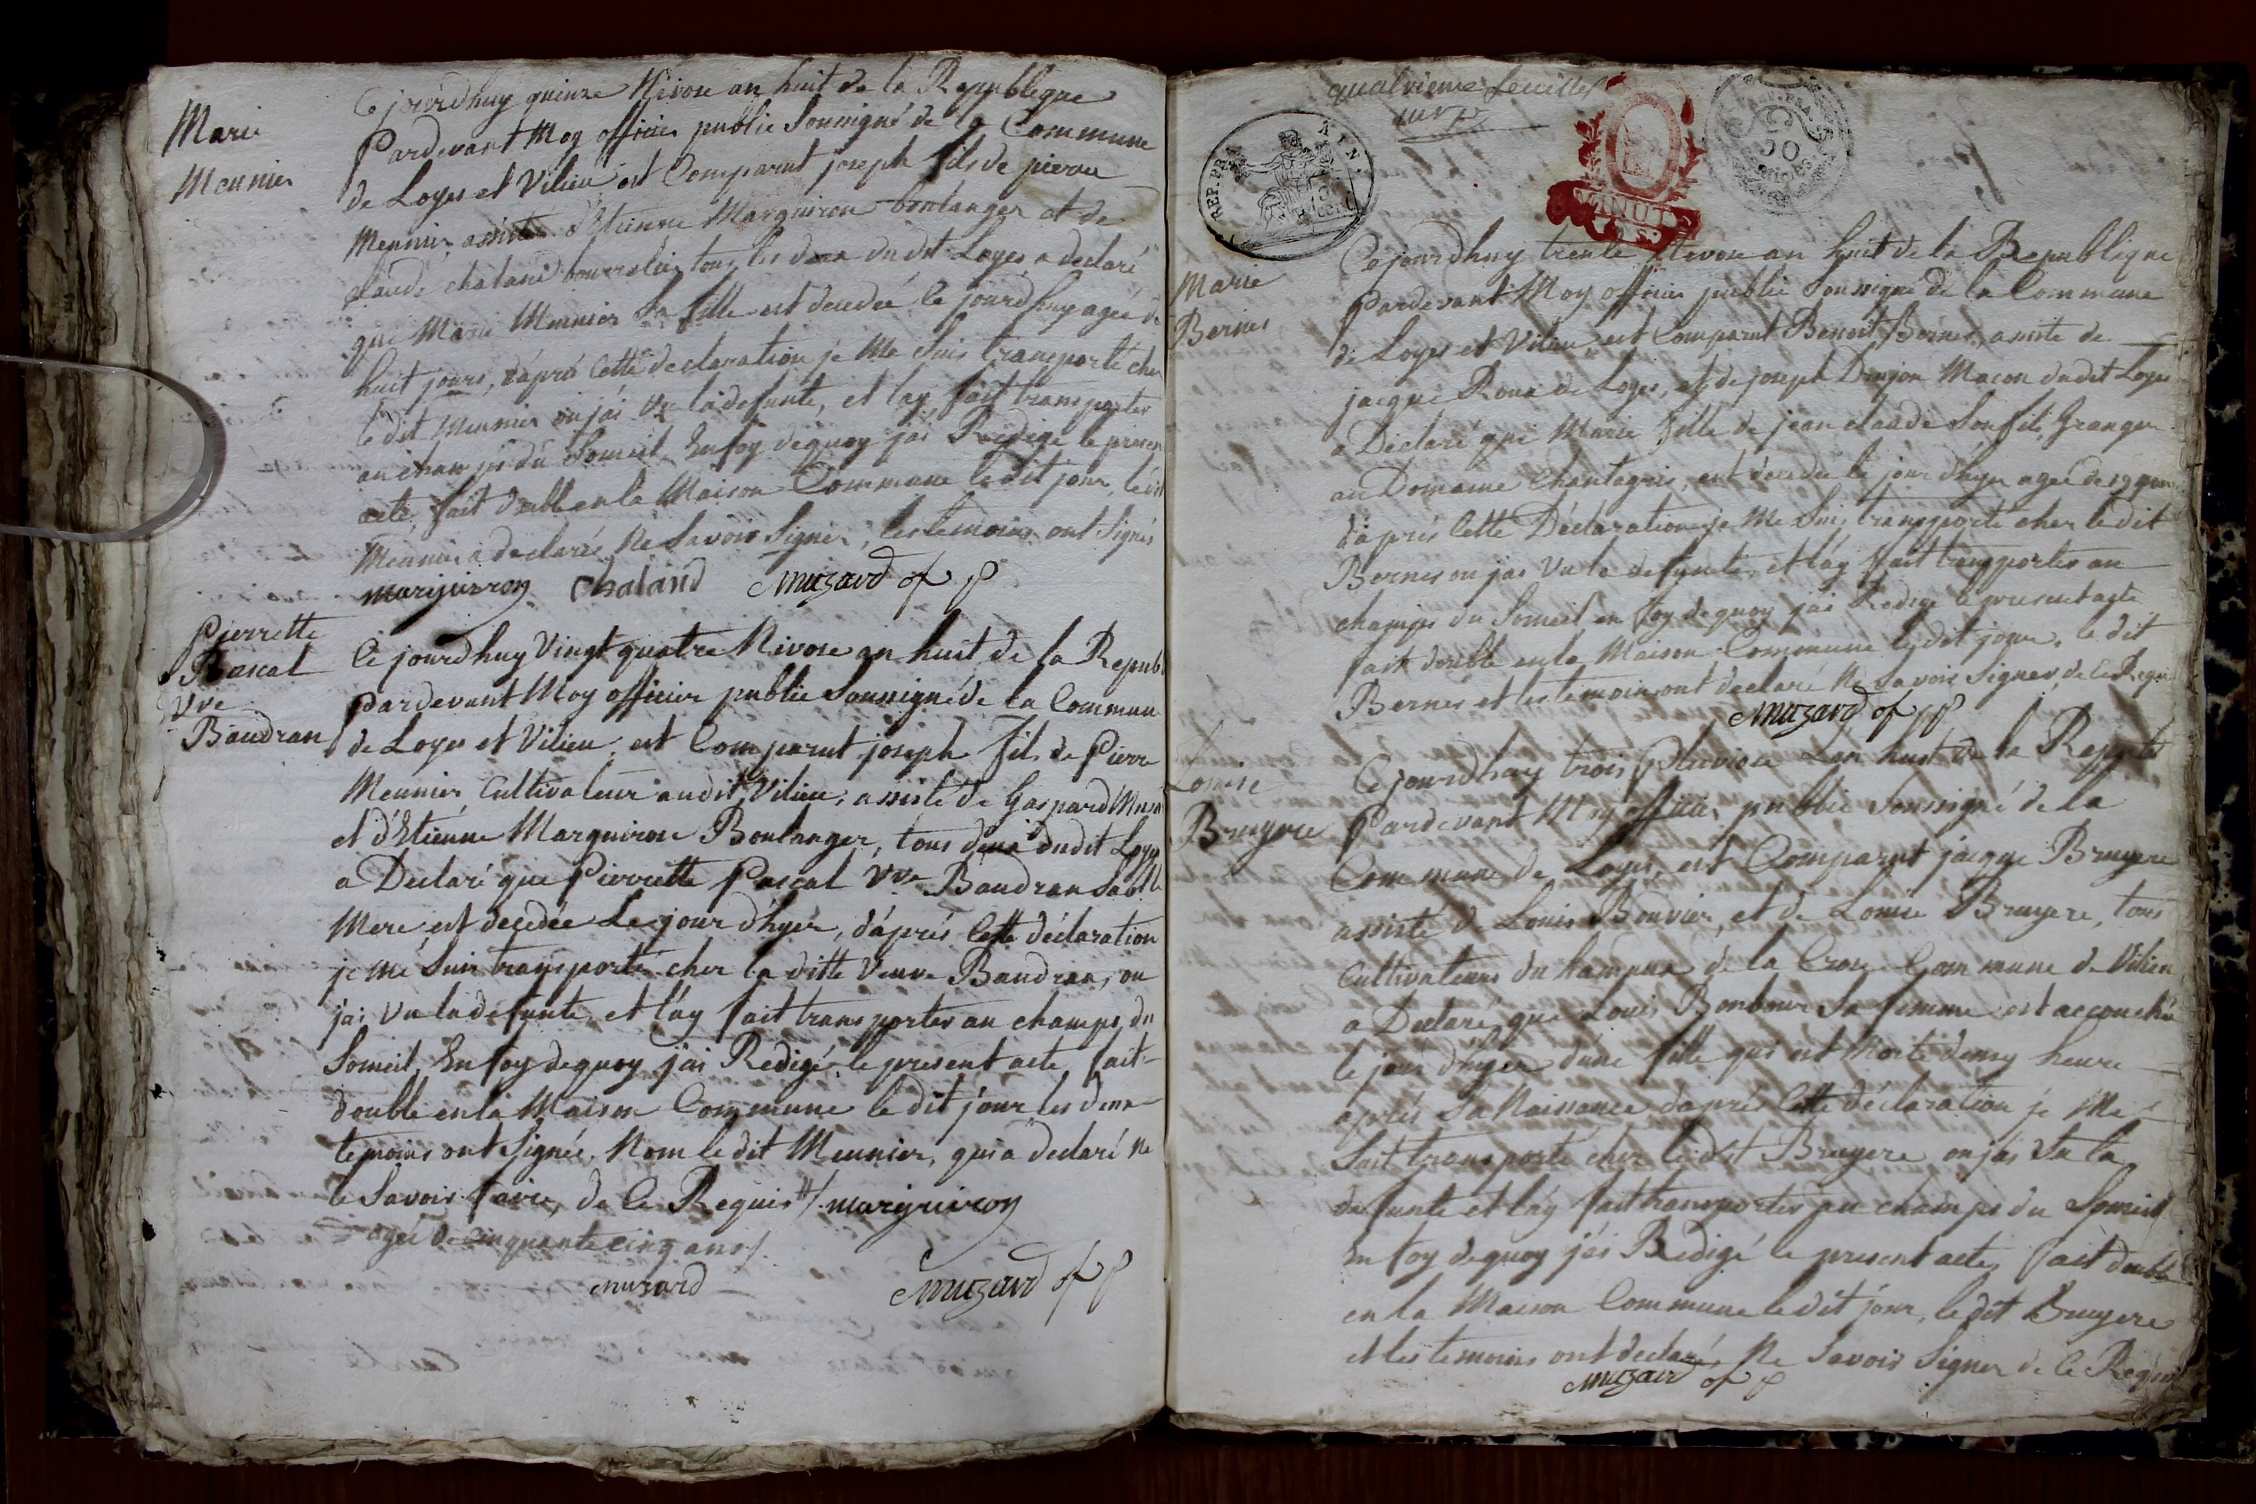 Marie
Meunier
Ce jourd'huy quinze Nivose an huit de la Republique
Pardevant Moy officier public Soussigné de la Commune
de Loyes et Vilieu est Comparut joseph fils de pierre
Meunier assisté d'Etienne Marguiron boulanger et de
claude chaland bourrelier tous les deux dudit Loyes a declaré
que Marie Meunier Sa fille est decedée le jourd'huy agée de
huit jours, d'aprés Cette declaration je Me Suis transporté cher
le dit Meunier ou jai Vu la defunte, et lay fait transporter
au champs du Someil, En foy dequoy jai Redigé le present
acte, fait double en la Maison Commune le dit jour, le dit
Meunier a declaré Ne Savoir Signer, les temoins ont Signés
marguiron chaland Muzard of p
Pierrette
Pascal
Vve
Baudran
Ce jourdhuy Vingt quatre Nivose an huit de la Republ
pardevant Moy officier public Soussigné de la Commun
de Loyes et Vilieu, est Comparut joseph fils de Pierre
Meunier Cultivateur audit Vilieu, assisté de Gaspard
et d'Etienne Marguiron Boulanger, tous deux dudit Loyes
a Declaré que Pierrette Pascal Vve Baudran Sa
Mere est decedée Le jour d'hyer, d'aprés Cette déclaration
je Me Suis transporté cher la ditte Veuve Baudran, ou
jai Vu la defunte, et l'ay fait transporter au champs du
Someil, En foy dequoy jai Redigé le present acte fait
double en la Maison Commune le dit jour les deux
temoins ont Signés, Nom le dit Meunier, qui a declaré Ne
le Savoir faire, de Ce Requis // marguiron
agée de Cinquante cinq ans /.
muzard Muzard of p
quatrieme feuillet
Marie
Bernes
Ce jourdhuy trente Nivose an huit de la Republique
Pardevant Moy officier public Soussigné de la Commune
de Loyes et Vilieu est Comparut Benoit Bernes, assisté de
jacque Roux de Loyes, et de joseph Dunjon Macon dudit Loyes
a Declaré que Marie fille de jean claude Son fils, Granger
au Domaine Chantagris, est decedée le jour d'hyer agée de
d'aprés Cette Déclaration je Me Suis transporté cher le dit
Bernes ou jai Vu la defunte, et l'ay fait transporter au
champs du Someil en foy dequoy jai Redigé le present acte
fait double en la Maison Commune le dit jour, le dit
Bernes et les temoins ont declaré Ne Savoir Signer, de Ce Requi
Muzard of p
Louise
Bruyere
Ce jourdhuy trois Pluviose L'an huit de la
Pardevant Moy officier public Soussigné de la
Commune de Loyes, est Comparut jacque Bruyere
assisté de Louis Bouvier, et de Louise Bruyere, tous
Cultivateurs du hameux de la Croze Commune de Vilieu
a Declaré que Louis Bonbour Sa femme est accouchée
le jour d'hyer d'une fille qui est Morte demy heure
aprés Sa Naissance d'aprés Cette déclaration je Me
Suit transporté cher le dit Bruyere ou jai Vu la
defunte et l'ay fait transporter au champs du Someil
En foy dequoy jái Redigé le present acte, fait double
en la Maison Commune le dit jour, le dit Bruyere
et les temoins ont declaré Ne Savoir Signer de Ce Requis
Muzard of p